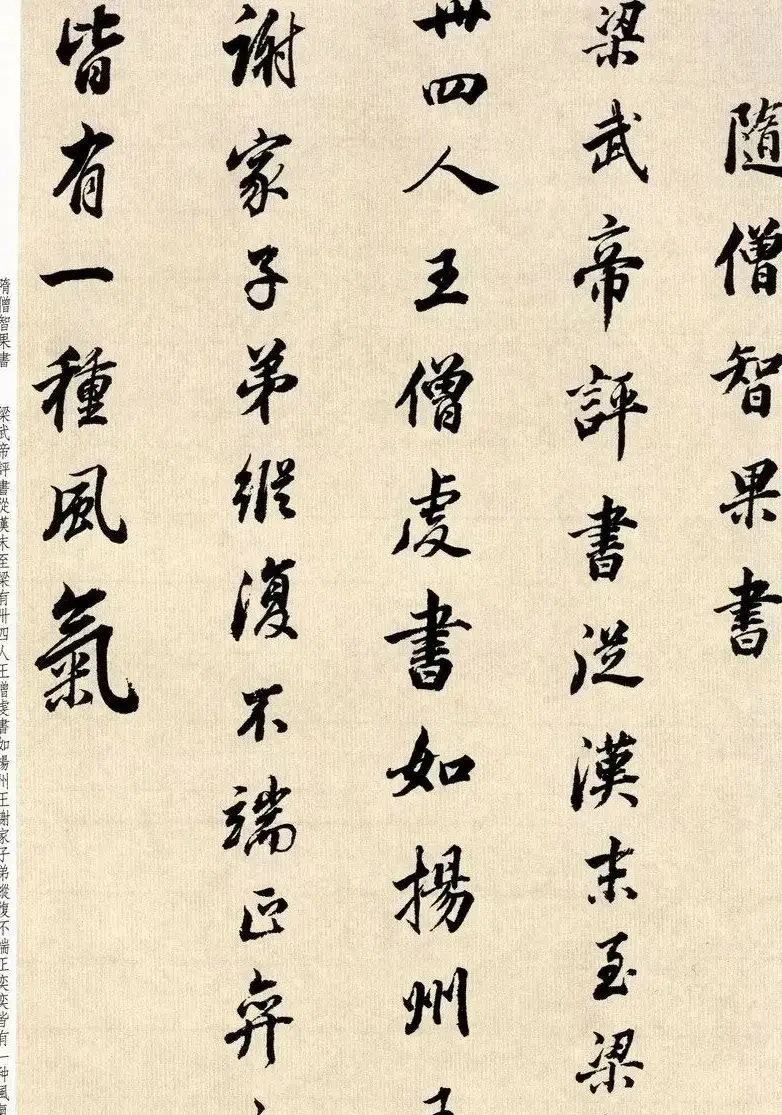 隨僧智果書
梁武帝評書從漢末至梁
卅四人王僧虔書如揚州王
謝家子弟縱復不端正奕
皆有一種風氣
隋僧智果書　梁武帝評書從漢末至梁有卅四人王僧虔書如揚州王謝家子弟縱復不端正奕奕皆有一种風氣